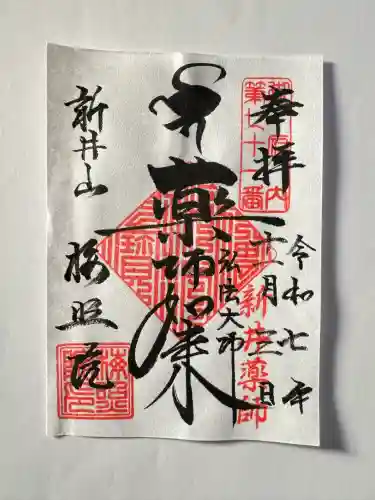 奉拝
第七十一番
令和七年
十二月三日
新井薬師
薬師如来
弘法大師
新井山
梅照院